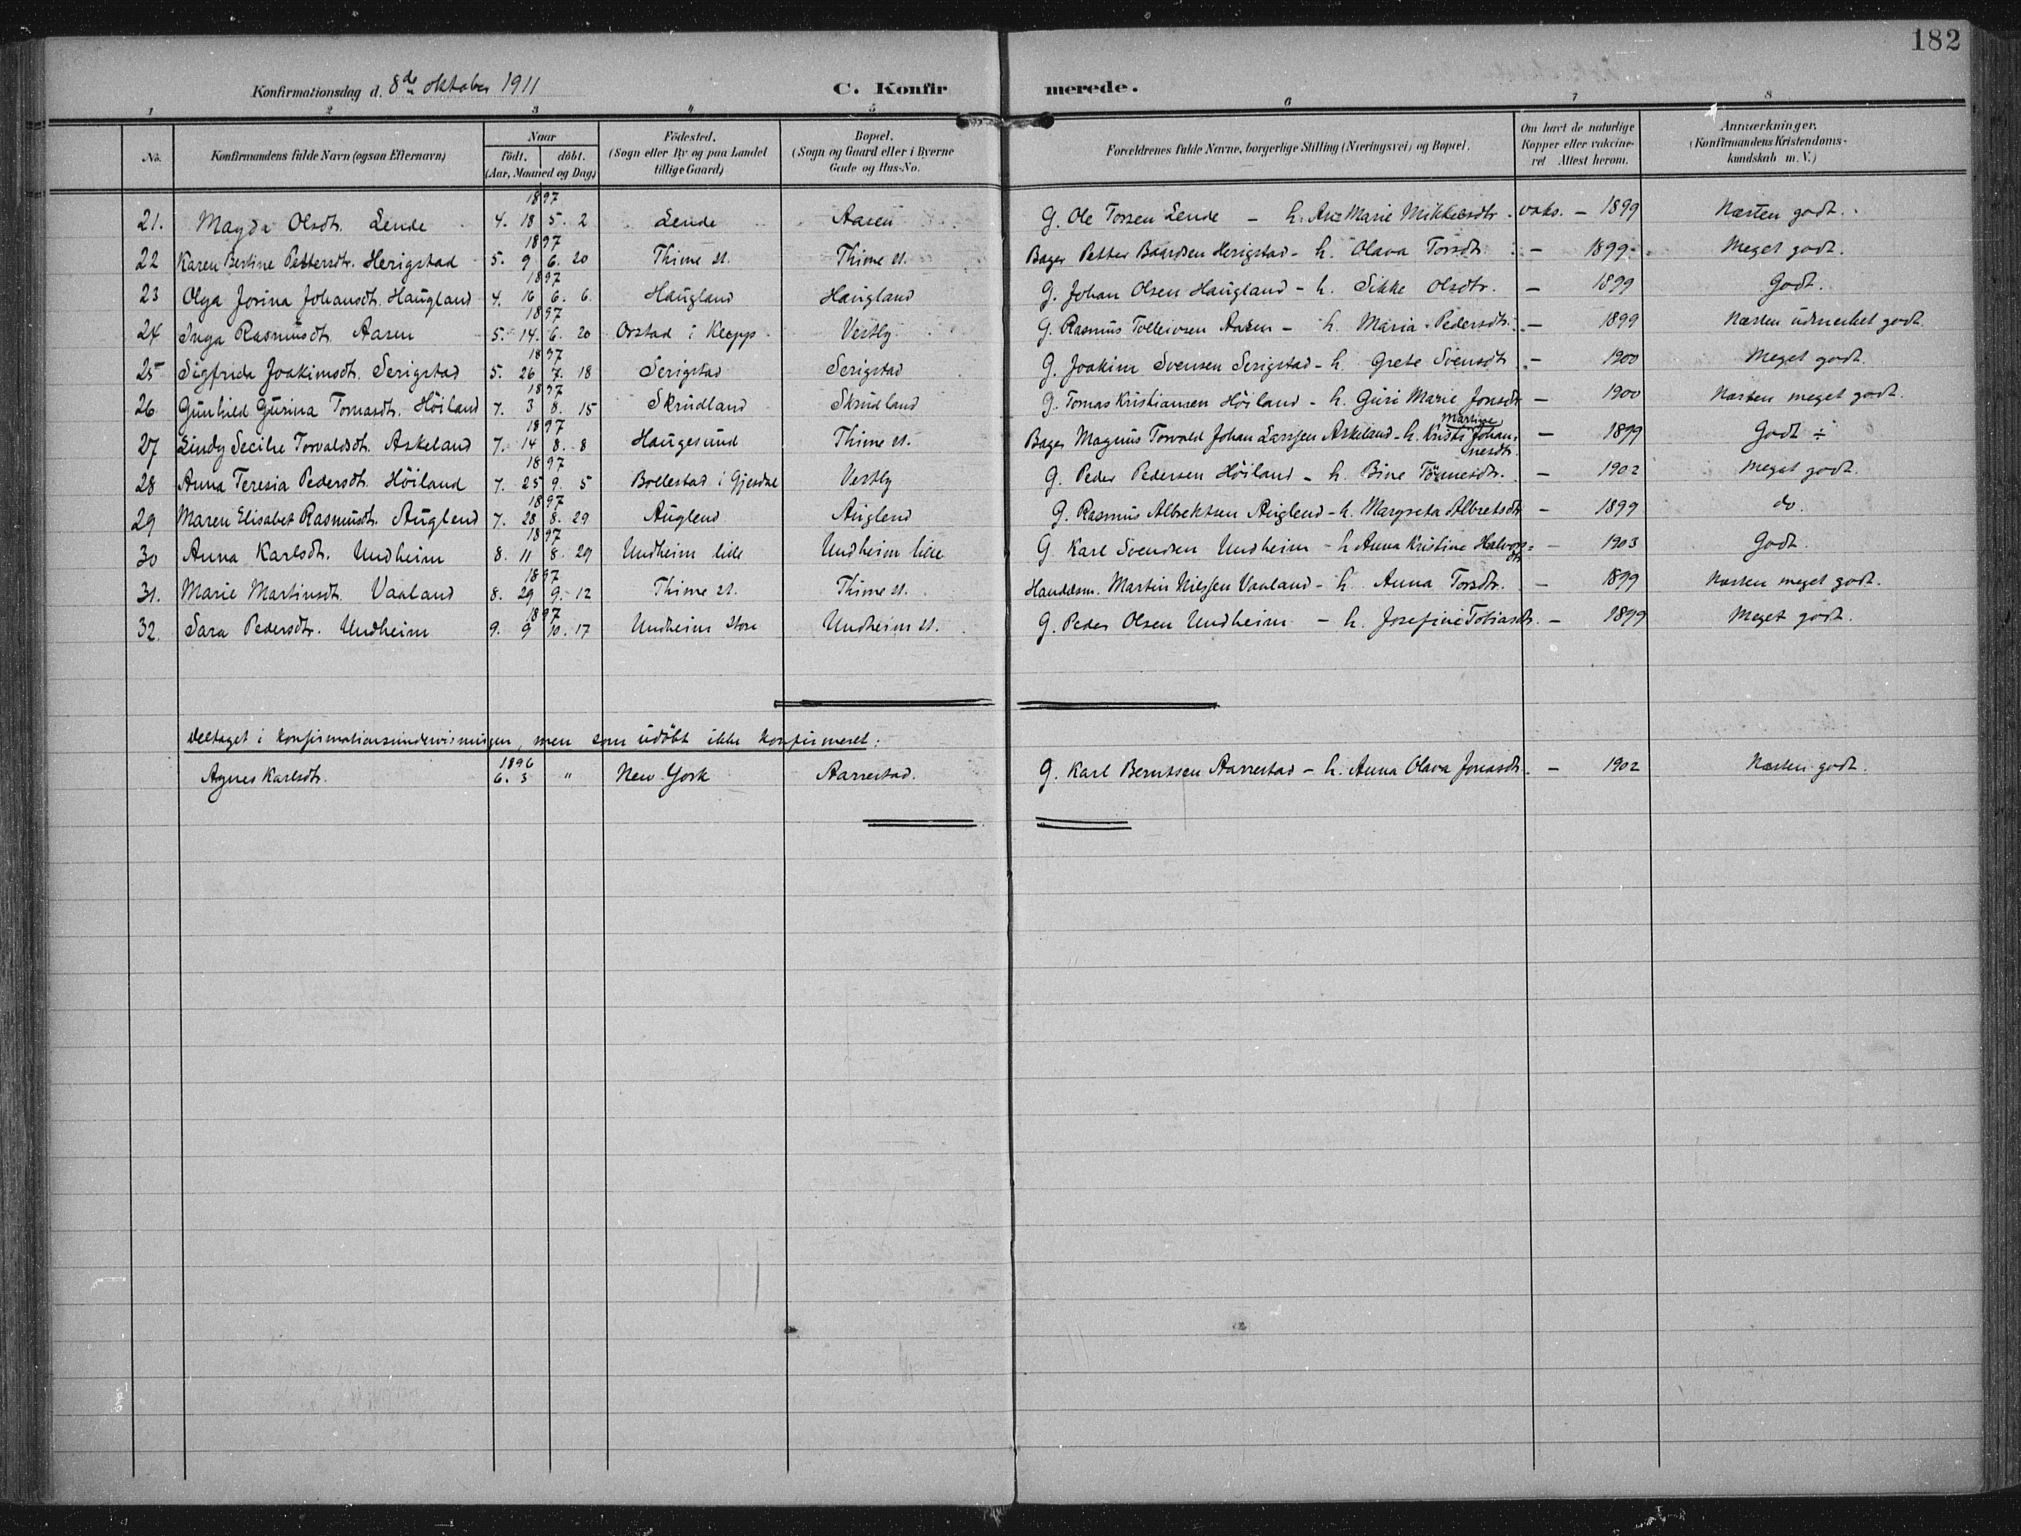 182
Konfirmationsdag d. 8de oktober 1911 C. Konfirmerede.
1 2 3 4 5 6 7 8
No. Konfirmandens fulde Navn (ogsaa Efternavn) Naar födt. döbt. (Aar, Maaned og Dag) Födested. (Sogn eller By og paa Landet tillige Gaard) Bopæl. (Sogn og Gaard eller i Byerne Gade og Hus-No. Forældrenes fulde Navne, borgerlige Stilling (Næringsvei) og Bopæl. Om havt de naturlige Kopper eller vakcineret Attest herom. Anmærkninger. (Konfirmandens Kristendomskundskab m. V.)
21. Magda Olsdtr. Lende 1897 4. 18 5. 2 Lende Aasen G. Ole Torsen Lende – h. Ane Marie Mikkelsdtr. vaks. – 1899 Næsten godt.
22 Karen Bertine Pettersdtr. Herigstad 1897 5. 9 6. 20 Thime st. Thime st. Bager Petter Baardsen Herigstad – h. Olava Torsdtr. – 1899 Meget godt.
23 Olga Jorina Johansdtr. Haugland 1897 4. 16 6. 6. Haugland Haugland G. Johan Olsen Haugland – h. Sikke Olsdtr. – 1899 Godt.
24 Inga Rasmusdtr. Aasen 1897 5. 14. 6. 20 Orstad i Klepp. Vestly G. Rasmus Tolleivsen Aasen – h. Maria Pedersdtr. – 1899 Næsten udmerket godt.
25 Sigfrida Joakimsdtr. Serigstad 1897 5. 26 7. 18 Serigstad Serigstad G. Joakim Svensen Serigstad – h. Grete Svensdtr. – 1900 Meget godt.
26 Gunhild Gurina Tomasdtr. Höiland 1897 7. 3 8. 15 Skrudland Skrudland G. Tomas Kristiansen Höiland – h. Guri Marie Jonsdtr – 1900 Næsten meget godt.
27 Lindy Secilie Torvaldsdtr. Askeland 1897 7. 14 8. 8 Haugesund Thime st. Bager Magnus Torvald Johan Larssen Askeland – h. Kristi Martine Johannesdtr. – 1899 Godt ÷
28 Anna Teresia Pedersdtr. Höiland 1897 7. 25 9. 5 Bollestad i Gjesdal Vestly G. Peder Pedersen Höiland – h. Bine Tönnesdtr. – 1902 Meget godt.
29 Maren Elisabet Rasmusdtr. Auglend 1897 7. 28 8. 29 Auglend Auglend G. Rasmus Albrektsen Auglend – h. Margreta Albretsdtr – 1899 do.
30 Anna Karlsdtr. Undheim 1897 8. 11 8. 29 Undheim lille Undheim lille G. Karl Svendsen Undheim – h Anna Kristine Halvorsdtr – 1903 Godt.
31. Marie Martinsdtr. Vaaland 1897 8. 29 9. 12 Thime st. Thime st. Handelsm. Martin Nilssen Vaaland – h. Anna Torsdtr. – 1899 Næsten meget godt.
32. Sara Pedersdtr. Undheim 1897 9. 9 10. 17 Undheim store Undheim st. G. Peder Olsen Undheim – h. Josefine Tobiasdtr. – 1899 Meget godt.
Deltaget i konfirmationsundervisningen, men som udöbt ikke konfirmeret:
Agnes Karlsdtr. 1896 6. 3 " New York Aarrestad. G. Karl Berntsen Aarrestad – h. Anna Olava Jonasdtr. – 1902 Næsten godt.